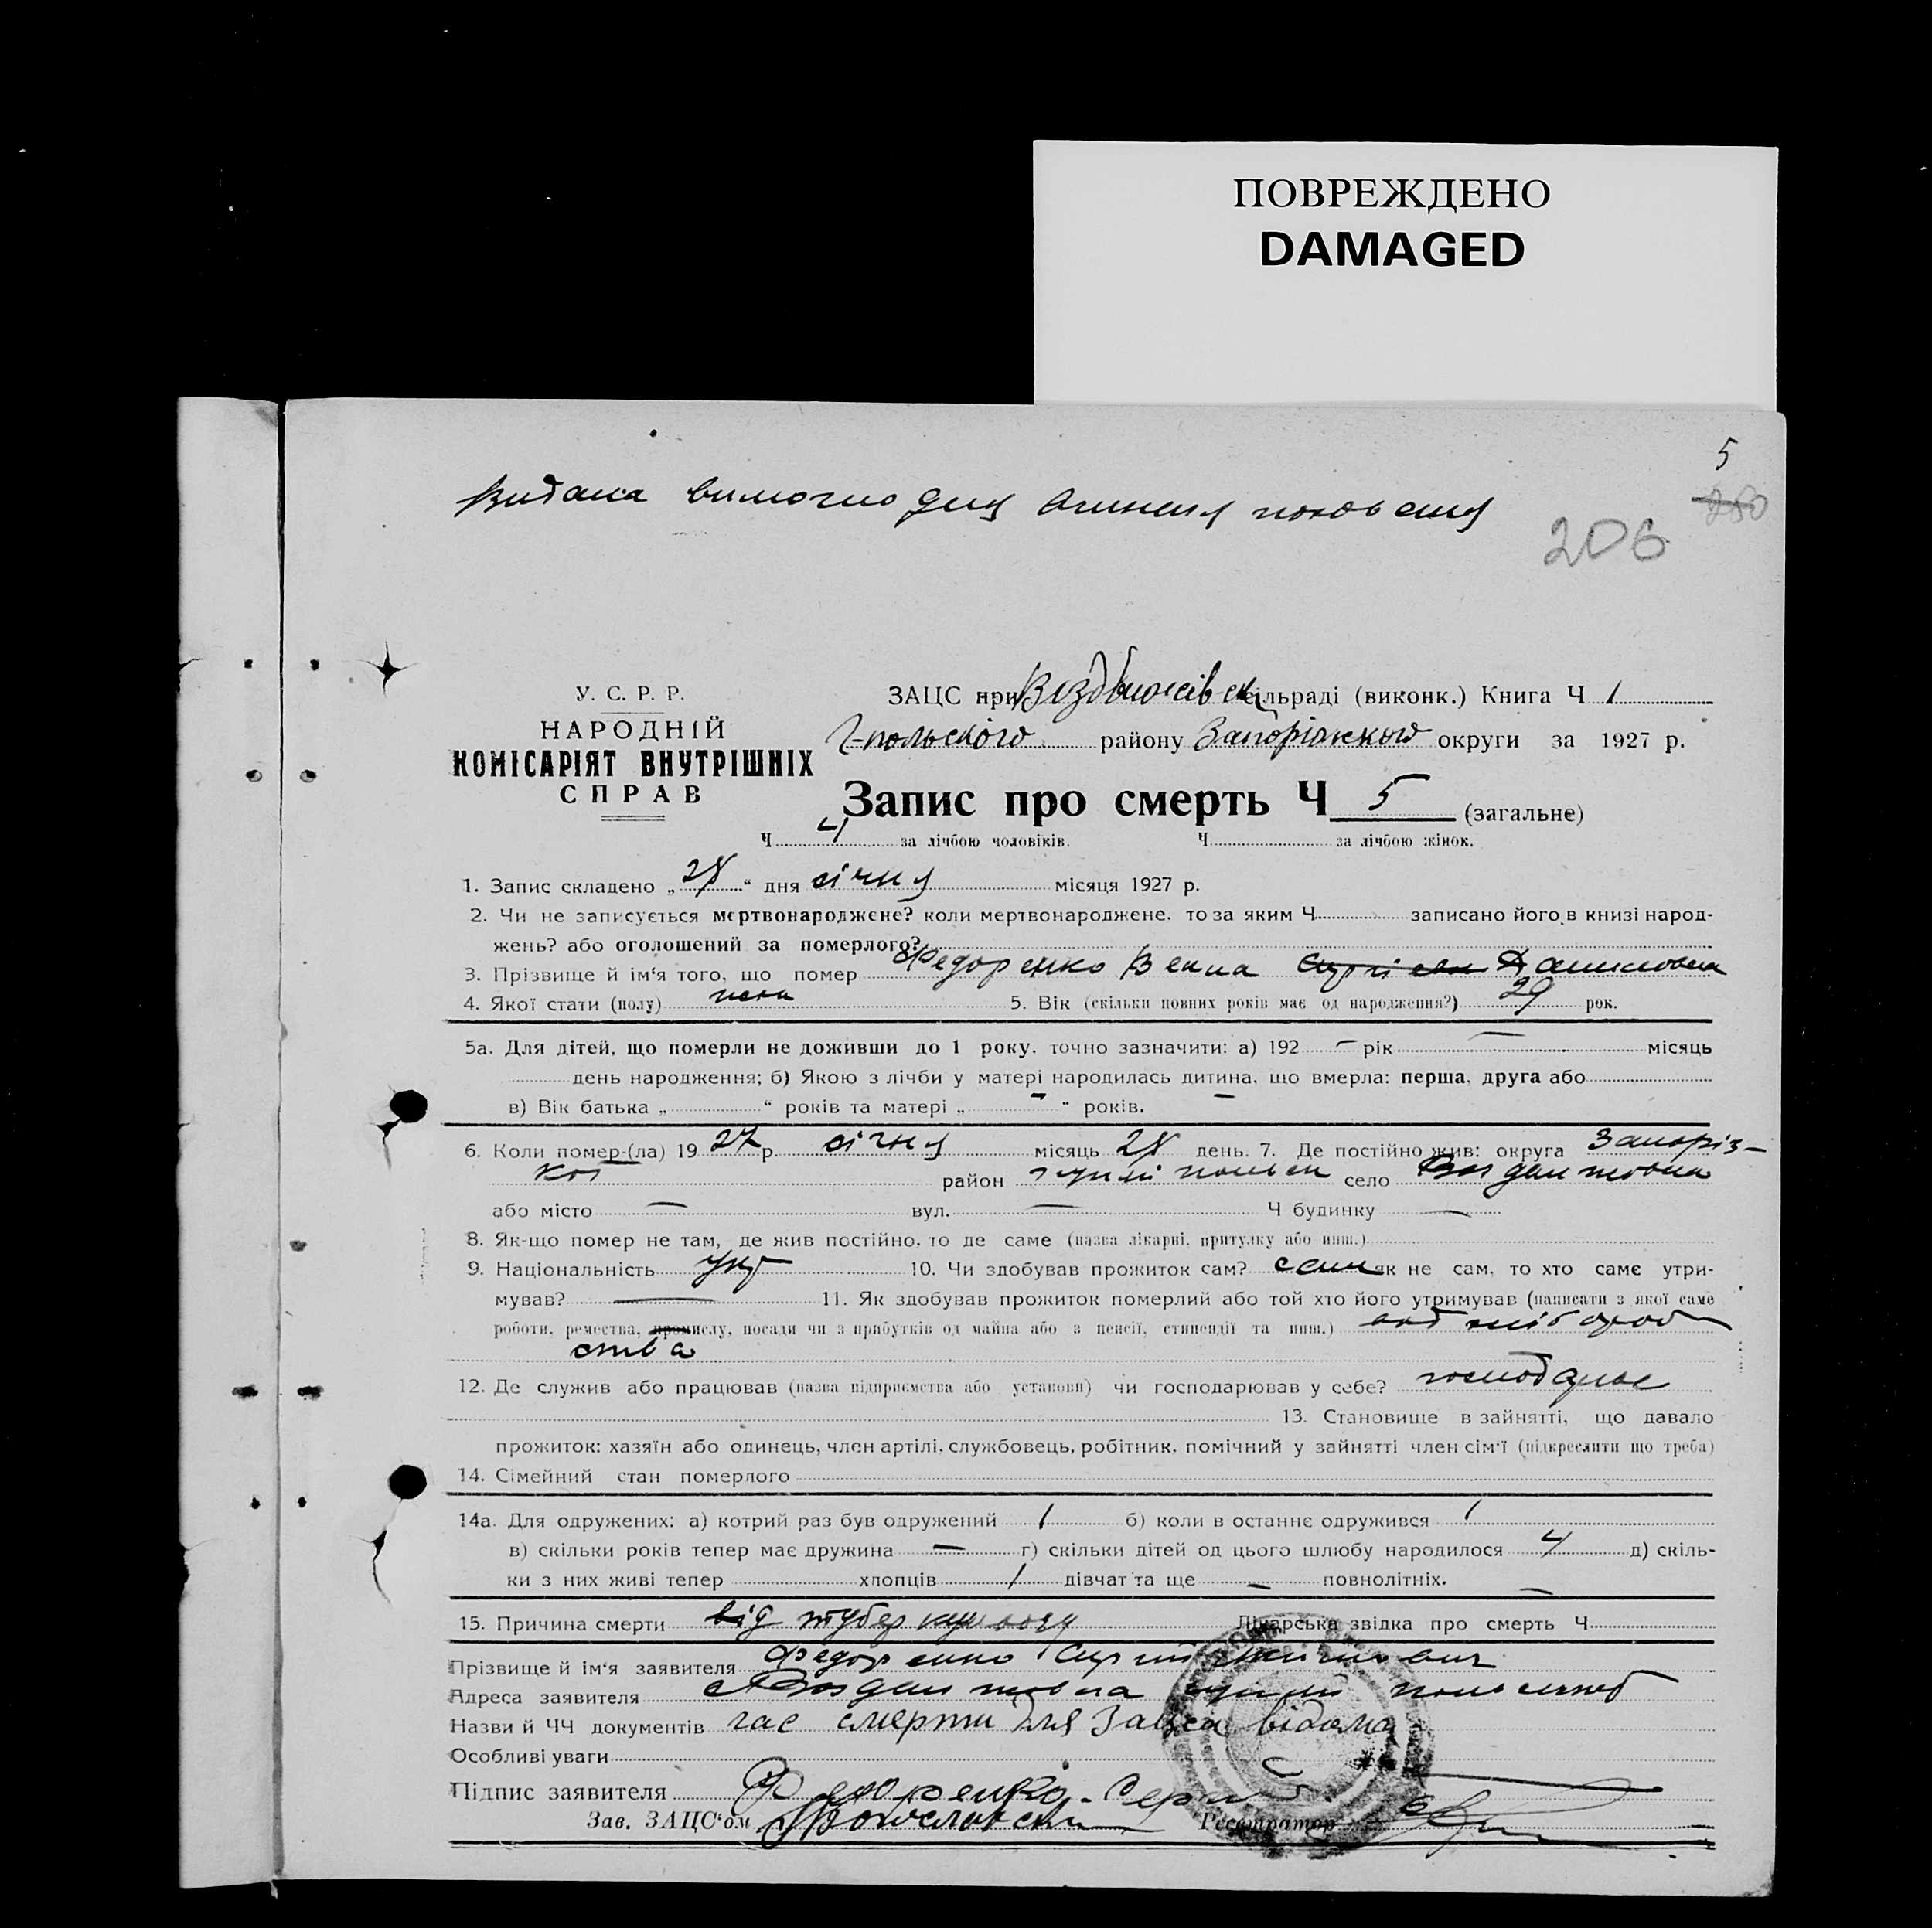 ПОВРЕЖДЕНО
DAMAGED
5
250
206
Видана
У. С. Р. Р.
НАРОДНІЙ
КОМІСАРІЯТ ВНУТРІШНІХ
СПРАВ
ЗАЦС при Воздвижівск сільраді (виконк.) Книга Ч 1
Г-польского району Запоріжського округи за 1927 р.
Запис про смерть Ч 5 (загальне)
Ч 4 за лічбою чоловіків. Ч за лічбою жінок.
1. Запис складено „28“ дня січня місяця 1927 р.
2. Чи не записується мертвонароджене? коли мертвонароджене, то за яким Ч записано його в книзі народ-
жень? або оголошений за померлого?
3. Прізвище й ім‘я того, що помер Федоренко Даниловна
4. Якої стати (полу) 5. Вік (скільки повних років має од народження?) 29 рок.
5а. Для дітей, що померли не доживши до 1 року, точно зазначити: а) 192 – рік — місяць
день народження; б) Якою з лічби у матері народилась дитина, що вмерла: перша, друга або
в) Вік батька „ “ років та матері „ – “ років. –
6. Коли помер-(ла) 19 27 р. січня місяць 28 день. 7. Де постійно жив: округа Запоріз-
кої район село
або місто — вул. — Ч будинку —
8. Як-що помер не там, де жив постійно, то де саме (назва лікарні, притулку або инш.)
9. Національність укр 10. Чи здобував прожиток сам? сам як не сам, то хто саме утри-
мував? — 11. Як здобував прожиток померлий або той хто його утримував (написати з якої саме
роботи, ремества, промислу, посади чи з прибутків од майна або з пенсії, стипендії та инш.) від хлібороб
ства
12. Де служив або працював (назва підприємства або установи) чи господарював у себе?
13. Становище в зайнятті, що давало
прожиток: хазяїн або одинець, член артілі, службовець, робітник, помічний у зайнятті член сім‘ї (підкреслити що треба)
14. Сімейний стан померлого
14а. Для одружених: а) котрий раз був одружений 1 б) коли в останнє одружився 1
в) скільки років тепер має дружина — г) скільки дітей од цього шлюбу народилося 4 д) скіль-
ки з них живі тепер хлопців 1 дівчат та ще – повнолітніх. –
15. Причина смерти від туберкульозу Лікарська звідка про смерть Ч
Прізвище й ім‘я заявителя Федоренко
Адреса заявителя
Назви й ЧЧ документів час смерти для Зацса відома
Особливі уваги
Підпис заявителя Федоренко
Зав. ЗАЦС‘ом Реєстратор